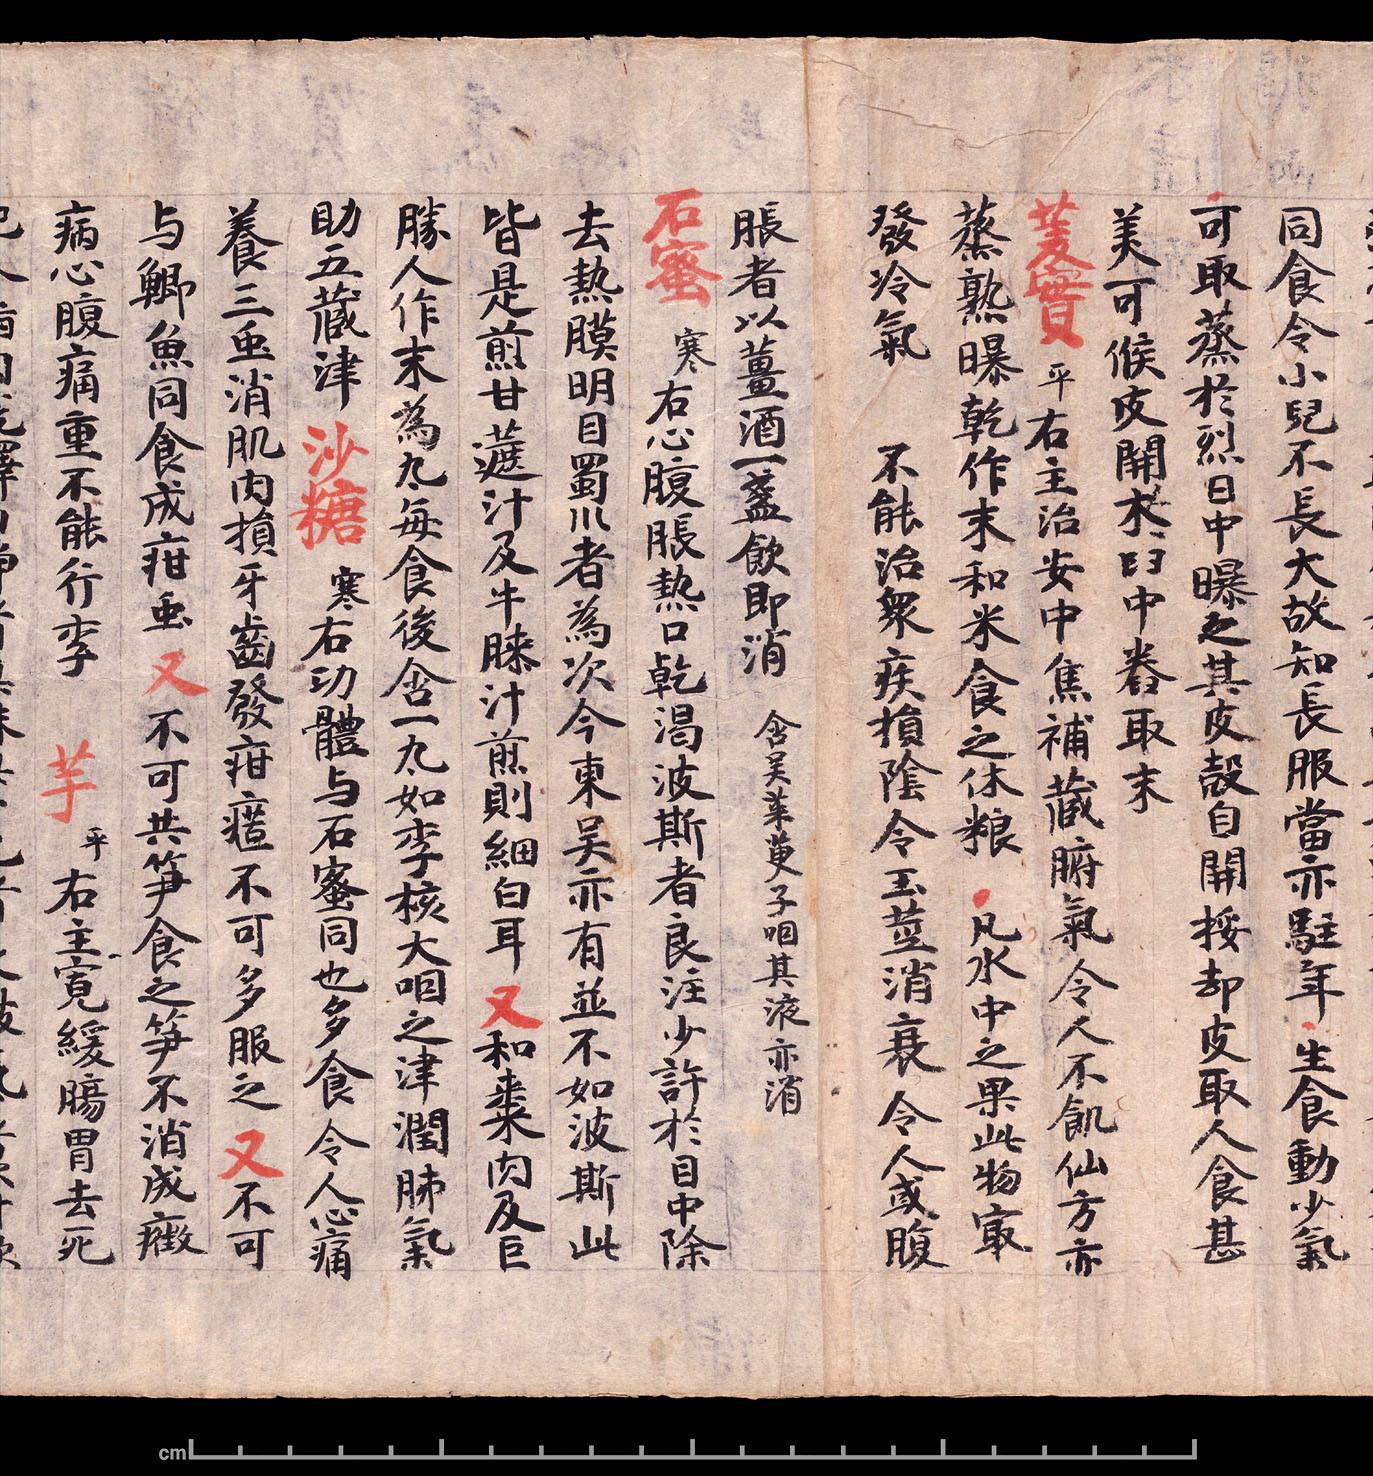 同食令小兒不長大故知長服當亦駐年生食動少氣
可取蒸於烈日中曝之其皮殼自開挼却皮取人食甚
美可候皮開木臼中舂取末
芰實平右主治安中焦補藏腑氣令人不飢仙方亦
蒸熟曝乾作末和米食之休粮凡水中之果此物寂
發冷氣不能治衆疾損陰令玉莖消衰令人或腹
脹者以薑酒一盞飲即消含吴茱萸子咽其液亦消
石蜜寒右心腹脹熱口乾渴波斯者良注少許於目中除
去熱膜明目蜀川者為次今東吴亦有並不如波斯此
皆是煎甘蔗汁及牛膝汁煎則細白耳又和棗肉及巨
勝人作末為丸每食後含一丸如李核大咽之津潤肺氣
助五藏津沙糖寒右功體与石蜜同也多食令心痛
養三䖝消肌肉損牙齒發疳䘌不可多服之又不可
与鯽魚同食成疳䖝又不可共笋食之笋不消成癥
病心腹痛重不能行李芋平右主寬緩腸胃去死